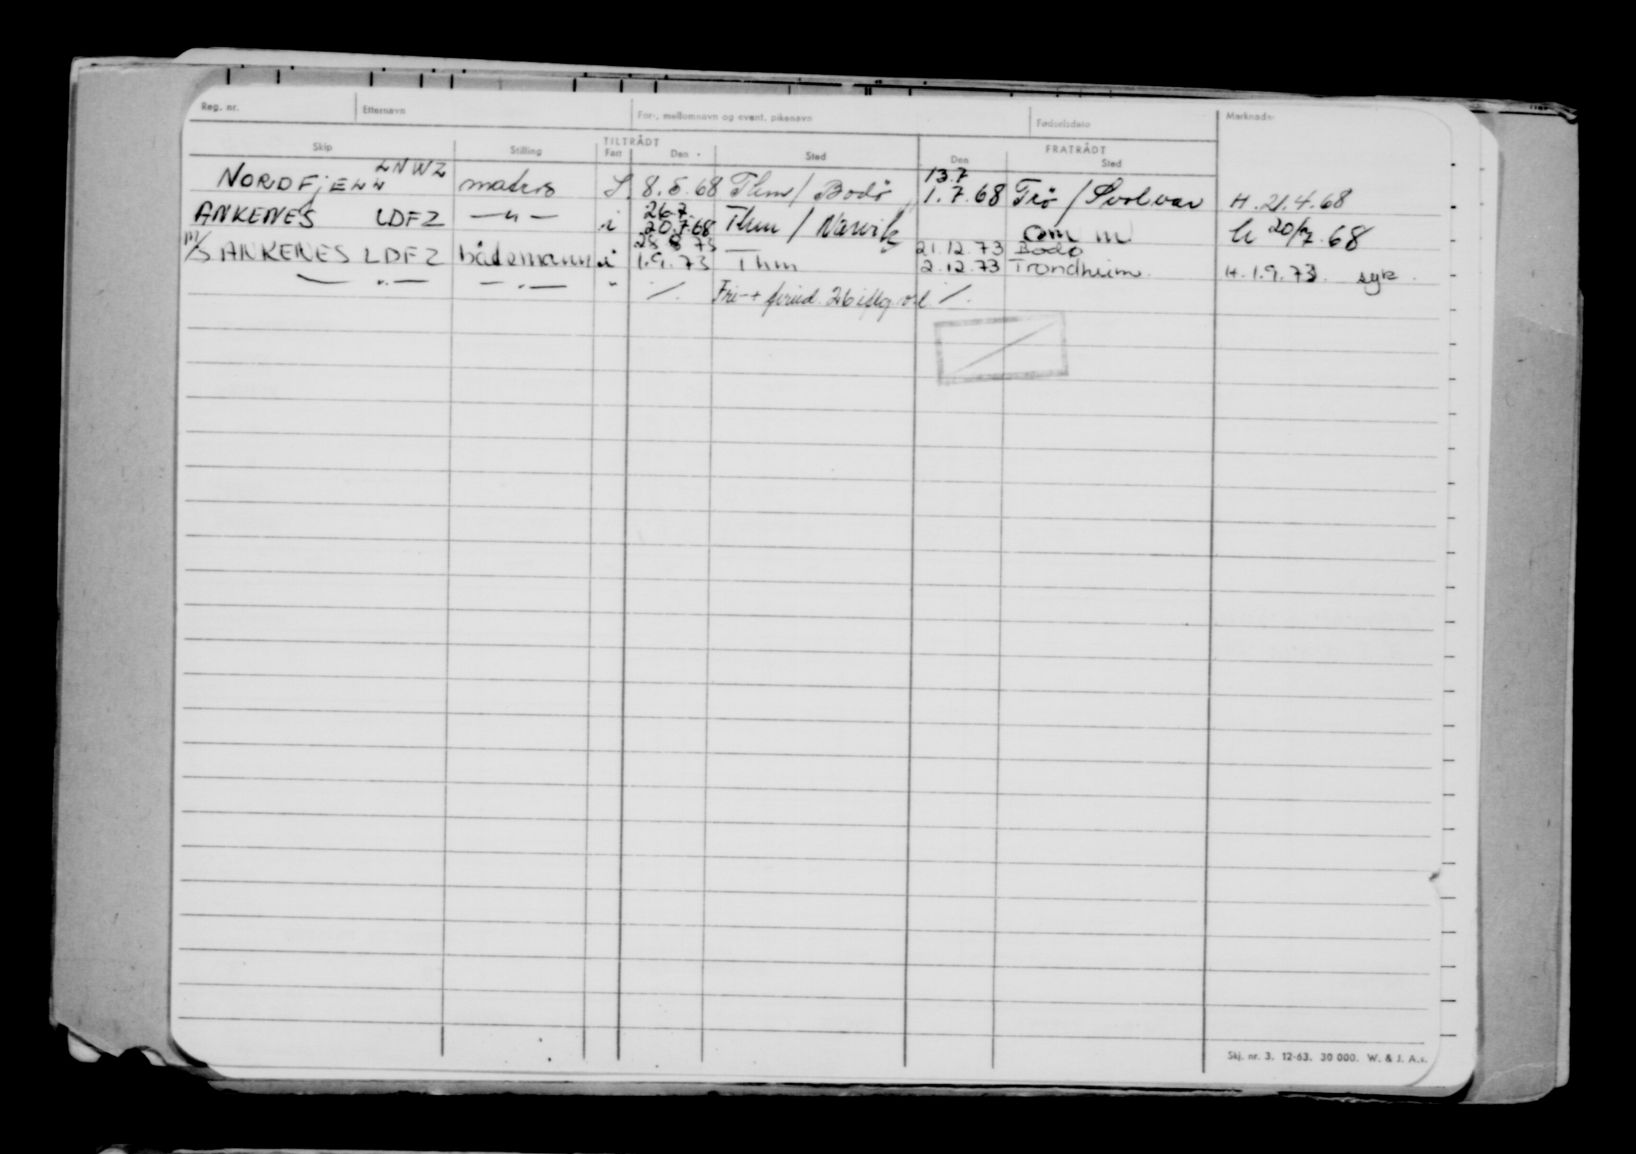 Reg. nr. Etternavn For-, mellomnavn og event. pikenavn Fødselsdato Merknader
TILTRÅDT FRATRÅDT
Skip Stilling Fart Den Sted Den Sted
LNWZ 13.7
NORDFJELL matros S. 8.5.68 Thm / Bodø 1.7.68 / Svolvær H. 21.4.68
26.7.
ANKENES LDFZ —"— i 20.7.68 Thm / Narvik om m 20/7.68
28 8 73 21.12.73 Bodø
M/S ANKENES LDFZ båtsmann i 1.9.73 Thm 2.12.73 Trondheim. H. 1.9.73. syk.
— " — — " — " ./. 26 ./.
Skj. nr. 3. 12-63. 30 000. W. & J. A.s.